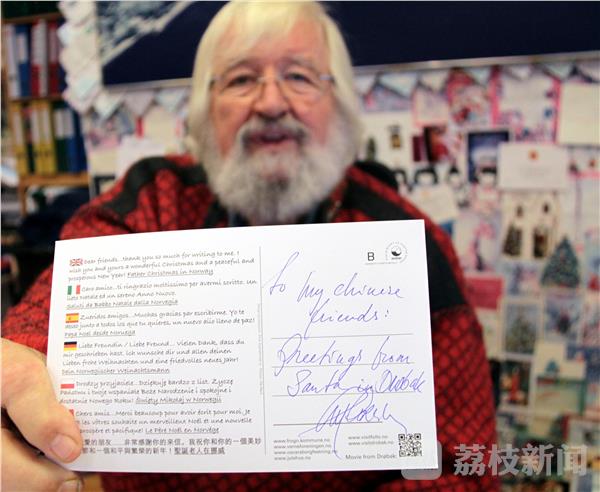 Dear friends...thank you so much for writing to me. I
wish you and yours a wonderful Christmas and a peaceful and
prosperous New Year! Father Christmas in Norway
Caro amico...ti ringrazio moltissimo per avermi scritto. Un
lieto Natale ed un sereno Anno Nuovo.
Saluti de Babbo Natale dalla Norvegia
Queridos amigos...Muchas gracias por escribirme. Yo te
deseo junto a todos los que tu quieres, un nuevo año lleno de paz!
Papá Noel desde Noruega
Liebe Freundin / Liebe Freund... Vielen Dank, dass du
mir geschrieben hast. Ich wünsche dir und allen deinen
Lieben frohe Weihnachten und eine friedvolles neues jahr!
Dein Norwegischer Weinachtsmann
Drodzy przyjaciele...Dziękuję bardzo z list. Życzę
Państwu i twoje wspaniałe Boże Narodzenie i spokojne i
dostatnie Nowego Roku! Święty Mikołaj w Norwegii
Chers amis...Merci beaucoup pour avoir écrit pour moi. Je
vous sûtres souhaite un merveilleux Noël et une nouvelle
prospère et pacifique! Le Père Noël en Norvège
愛的朋友...非常感謝你的來信。我祝你和你的一個美妙
和一個和平與繁榮的新年！聖誕老人在挪威
B
To my chinese
friends:
Greetings from
Santa in Drøbak
www.frogn.kommune.no
www.visitfollo.no
www.visitdrobak.no
www.julehus.no
Movie from Drøbak:
荔枝新闻